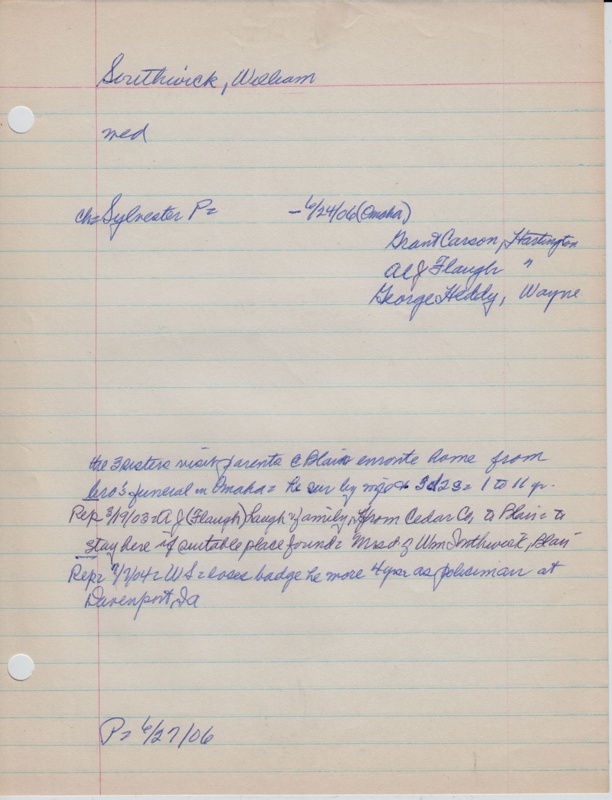 Southwick, William
med
ch= Sylvester P=  - 6/24/06 (Omaha)
Grant Carson, Hartington
A J Flaugh "
George Heddy, Wayne
the 3 sisters visit parents @ Blair enroute home from
bro's funeral in Omaha= he sur by 3d 2s= 1 to 11 yr.
Rep 3/17/03= A J (Flaugh) & family, from Cedar Co to Blair= to
stay here if suitable place found= Wm Southwick, Blair
Rep= W S= loses badge he wore 4 yrs as policeman at
Davenport, Ia
P= 6/27/06